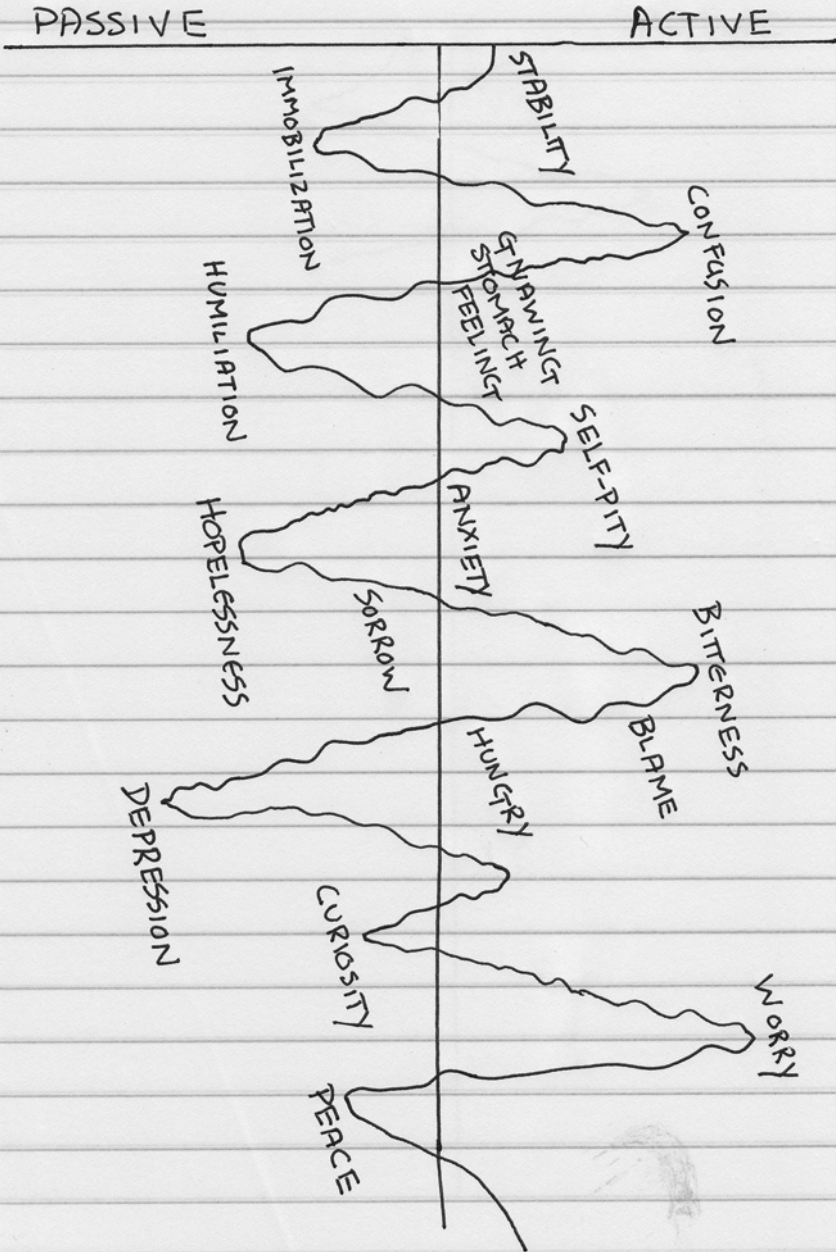 PASSIVE
ACTIVE
STABILITY
IMMOBILIZATION
CONFUSION
GNAWING
STOMACH
FEELING
HUMILIATION
SELF-PITY
ANXIETY
HOPELESSNESS
SORROW
BITTERNESS
BLAME
HUNGRY
DEPRESSION
CURIOSITY
WORRY
PEACE